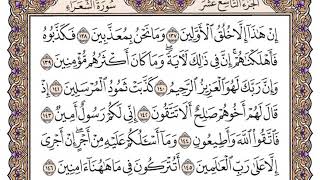 الجزء التاسع عشر سورة الشعراء
إِنْ هَٰذَا إِلَّا خُلُقُ الْأَوَّلِينَ ١٣٧ وَمَا نَحْنُ بِمُعَذَّبِينَ ١٣٨ فَكَذَّبُوهُ
فَأَهْلَكْنَاهُمْ إِنَّ فِي ذَٰلِكَ لَآيَةً وَمَا كَانَ أَكْثَرُهُم مُّؤْمِنِينَ ١٣٩
وَإِنَّ رَبَّكَ لَهُوَ الْعَزِيزُ الرَّحِيمُ ١٤٠ كَذَّبَتْ ثَمُودُ الْمُرْسَلِينَ ١٤١
إِذْ قَالَ لَهُمْ أَخُوهُمْ صَالِحٌ أَلَا تَتَّقُونَ ١٤٢ إِنِّي لَكُمْ رَسُولٌ أَمِينٌ ١٤٣
فَاتَّقُوا اللَّهَ وَأَطِيعُونِ ١٤٤ وَمَا أَسْأَلُكُمْ عَلَيْهِ مِنْ أَجْرٍ إِنْ أَجْرِيَ
إِلَّا عَلَىٰ رَبِّ الْعَالَمِينَ ١٤٥ أَتُتْرَكُونَ فِي مَا هَاهُنَا آمِنِينَ ١٤٦